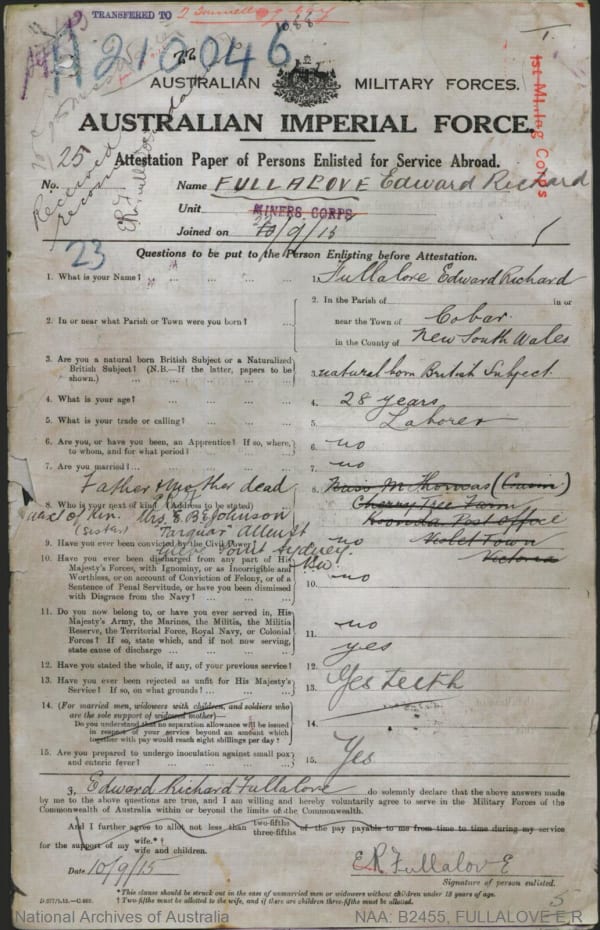 TRANSFERRED TO
AUSTRALIAN MILITARY FORCES.
AUSTRALIAN IMPERIAL FORCE.
1st Mining Corps
Attestation Paper of Persons Enlisted for Service Abroad.
No. 25 Name FULLALOVE Edward Richard
Unit MINERS CORPS
Joined on /9/15
23
Questions to be put to the Person Enlisting before Attestation.
1. What is your Name? 1. Fullalove Edward Richard
2. In or near what Parish or Town were you born? 2. In the Parish of in or
near the Town of Cobar
in the County of New South Wales
3. Are you a natural born British Subject or a Naturalized British Subject? (N.B.—If the latter, papers to be shown.) 3. natural born British Subject
4. What is your age? 4. 28 years
5. What is your trade or calling? 5. Laborer
6. Are you, or have you been, an Apprentice? If so, where, to whom, and for what period? 6. no
7. Are you married? 7. no
Father & Mother dead
8. Who is your next of kin? (Address to be stated) 8. Thomas (Cousin)
Cherry Tree Farm
Post Office
Violet Town
Victoria
next of Kin. Mrs. Johnson
(Sister) Allen St
Glebe Point Sydney.
9. Have you ever been convicted by the Civil Power? 9. no
10. Have you ever been discharged from any part of His Majesty's Forces, with Ignominy, or as Incorrigible and Worthless, or on account of Conviction of Felony, or of a Sentence of Penal Servitude, or have you been dismissed with Disgrace from the Navy? 10. no
11. Do you now belong to, or have you ever served in, His Majesty's Army, the Marines, the Militia, the Militia Reserve, the Territorial Force, Royal Navy, or Colonial Forces? If so, state which, and if not now serving, state cause of discharge 11. no
12. Have you stated the whole, if any, of your previous service? 12. yes
13. Have you ever been rejected as unfit for His Majesty's Service? If so, on what grounds? 13. Yes teeth
14. (For married men, widowers with children, and soldiers who are the sole support of widowed mother)—
Do you understand that no separation allowance will be issued in respect of your service beyond an amount which together with pay would reach eight shillings per day? 14.
15. Are you prepared to undergo inoculation against small pox and enteric fever? 15. Yes
3. Edward Richard Fullalove do solemnly declare that the above answers made
by me to the above questions are true, and I am willing and hereby voluntarily agree to serve in the Military Forces of the
Commonwealth of Australia within or beyond the limits of the Commonwealth.
And I further agree to allot not less than two-fifths three-fifths of the pay payable to me from time to time during my service
for the support of my wife.*† wife and children.
Date 10/9/15 E.R. Fullalove
Signature of person enlisted.
*This clause should be struck out in the case of unmarried men or widowers without children under 18 years of age.
† Two-fifths must be allotted to the wife, and if there are children three-fifths must be allotted.
National Archives of Australia NAA: B2455, FULLALOVE E R